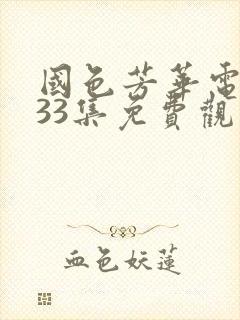 國色芳華電
33集免費觀
血色妖蓮